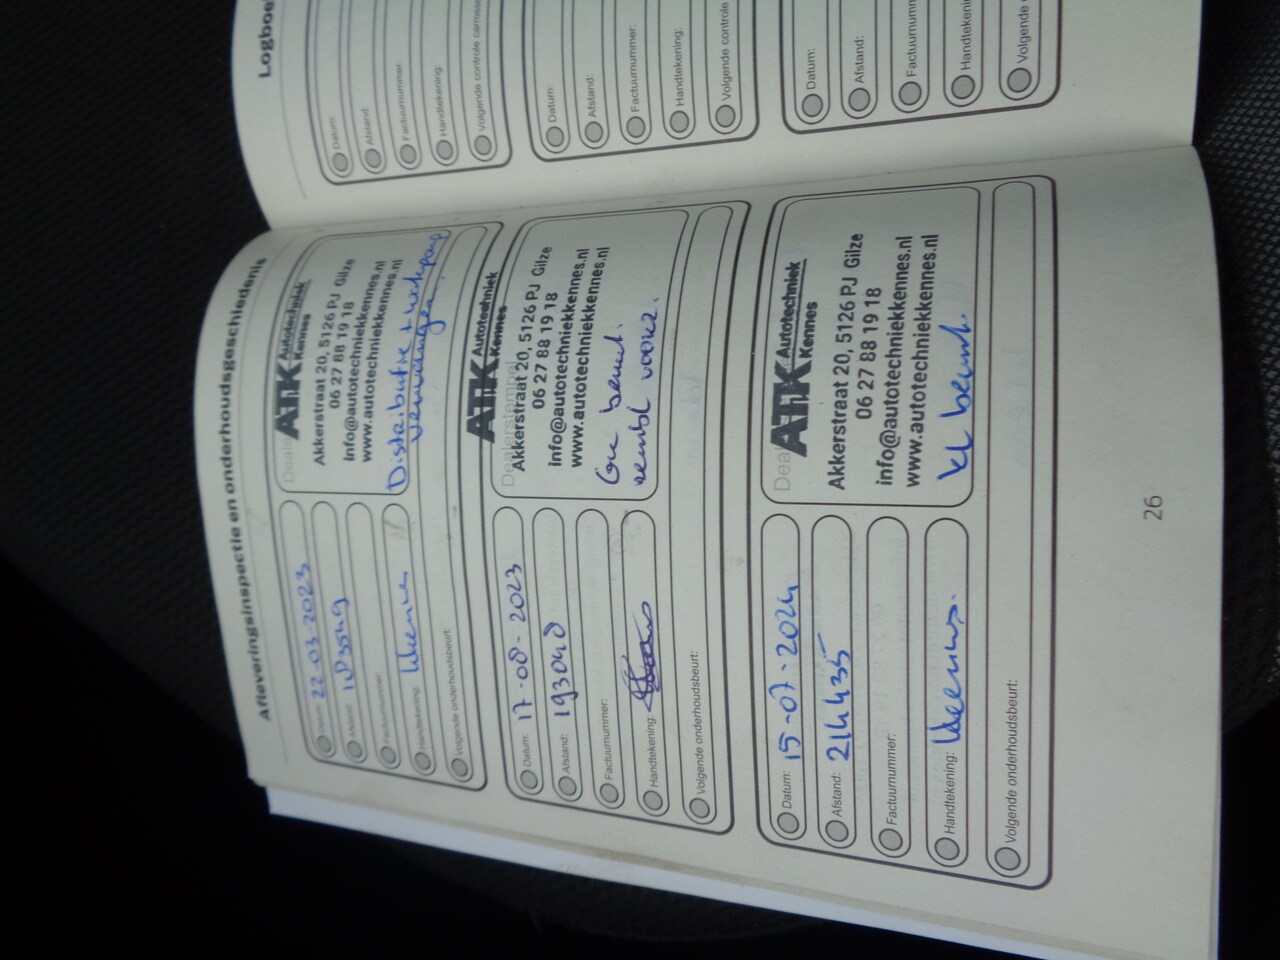 Afleveringsinspectie en onderhoudsgeschiedenis
Datum: 22-03-2023
Afstand:
Factuurnummer:
Handtekening:
Volgende onderhoudsbeurt:
ATK Autotechniek
Kennes
Akkerstraat 20, 5126 PJ Gilze
06 27 88 19 18
info@autotechniekkennes.nl
www.autotechniekkennes.nl
Distributie + waterpomp
vervangen.
Datum: 17-08-2023
Afstand: 193040
Factuurnummer:
Handtekening:
Volgende onderhoudsbeurt:
Dealerstempel
ATK Autotechniek
Kennes
Akkerstraat 20, 5126 PJ Gilze
06 27 88 19 18
info@autotechniekkennes.nl
www.autotechniekkennes.nl
beurt.
Datum: 15-07-2024
Afstand: 214435
Factuurnummer:
Handtekening:
Volgende onderhoudsbeurt:
ATK Autotechniek
Kennes
Akkerstraat 20, 5126 PJ Gilze
06 27 88 19 18
info@autotechniekkennes.nl
www.autotechniekkennes.nl
kl beurt.
26
Datum:
Afstand:
Factuurnummer:
Handtekening:
Volgende controle
Datum:
Afstand:
Factuurnummer:
Handtekening:
Volgende controle
Datum:
Afstand:
Volgende